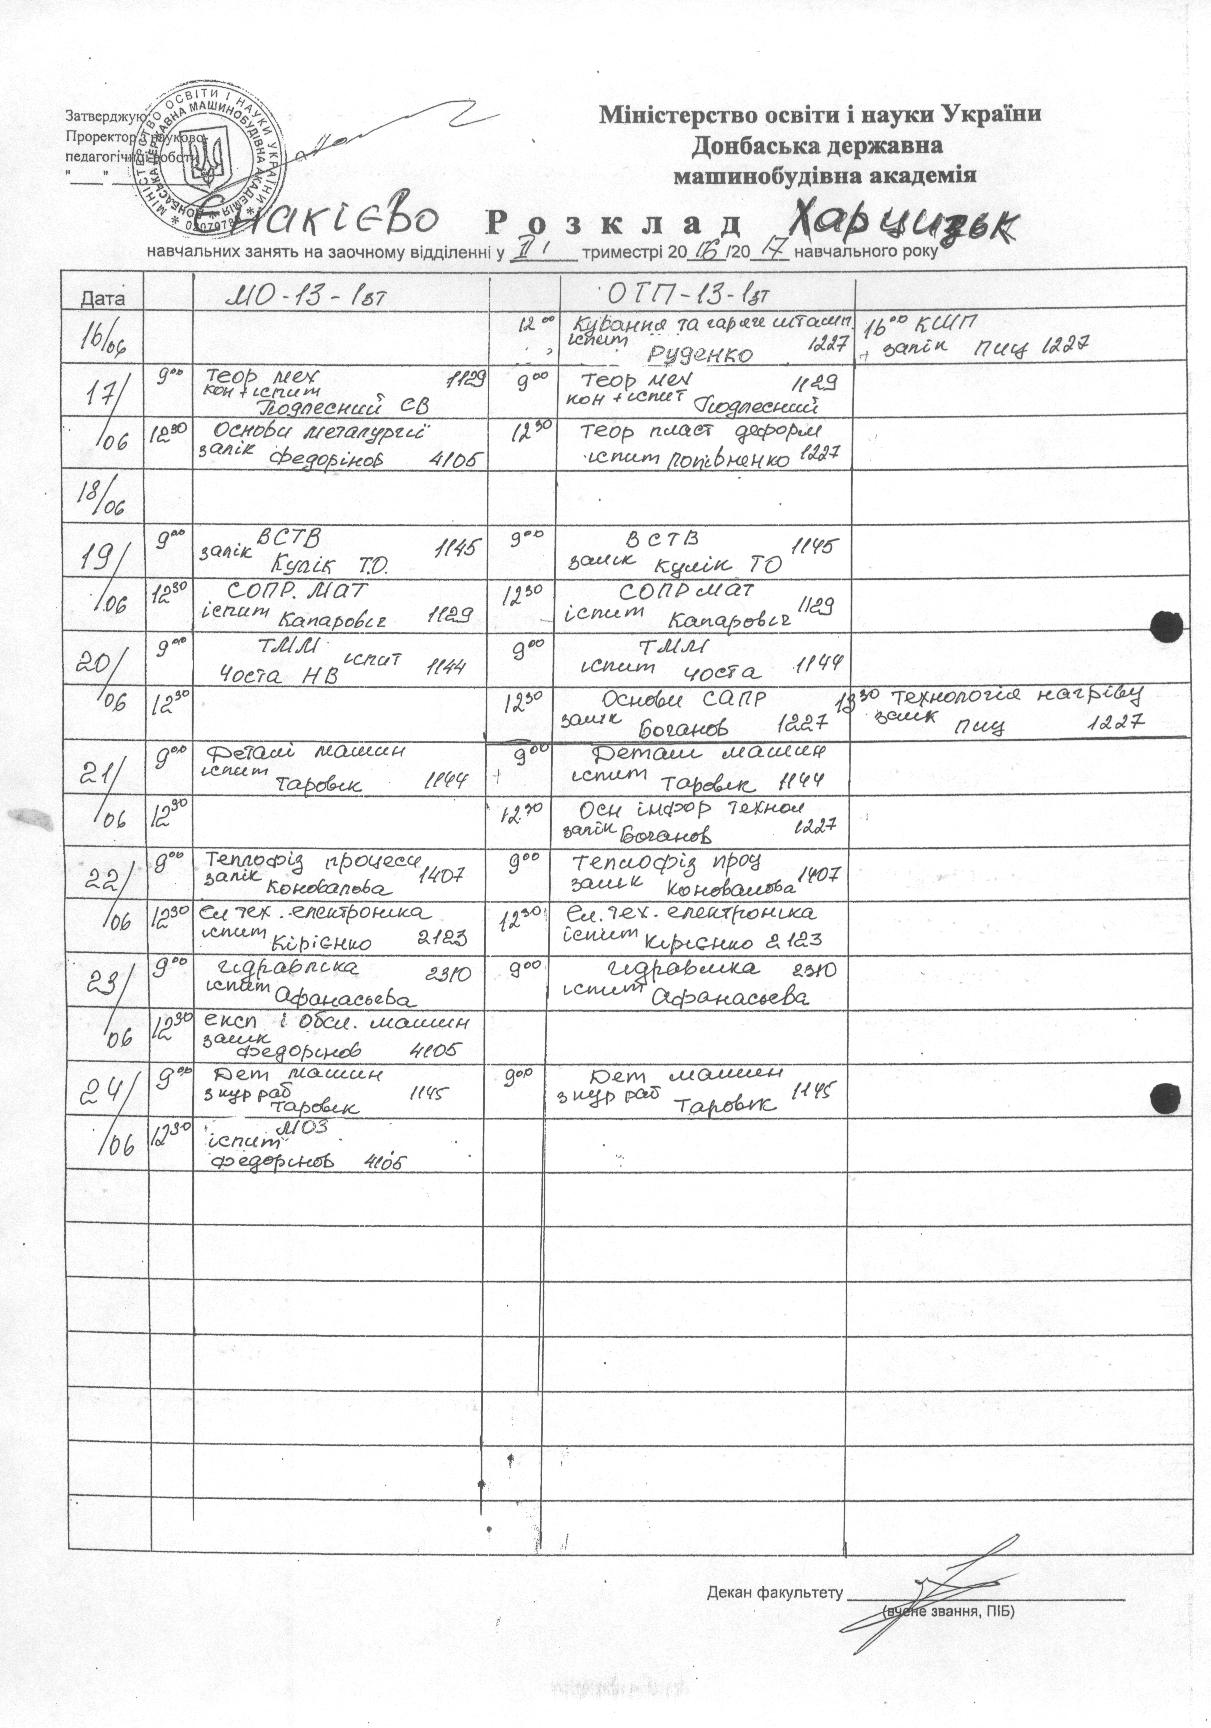 Затверджую
Проректор з науково-
педагогічної роботи
"____" ________
МІНІСТЕРСТВО ОСВІТИ І НАУКИ УКРАЇНИ
ДОНБАСЬКА ДЕРЖАВНА МАШИНОБУДІВНА АКАДЕМІЯ
Міністерство освіти і науки України
Донбаська державна
машинобудівна академія
Єнакієво Розклад Харцизьк
навчальних занять на заочному відділенні у III триместрі 2016/2017 навчального року
Дата МО-13-1зт ОТП-13-1зт
16/06 12 00 Кування та гаряче штамп 16 00 КШП
іспит Руденко 1227 + залік Пиц 1227
17/06 9 00 Теор мех 1129 9 00 Теор мех 1129
кон + іспит кон + іспит
Подлесний СВ Подлесний
12 30 Основи металургії 12 30 Теор пласт деформ
залік Федорінов 4105 іспит Попівненко 1227
18/06
19/06 9 00 ВСТВ 1145 9 00 ВСТВ 1145
залік Кулік Т.О. залік Кулік ТО
12 30 СОПР. МАТ 12 30 СОПР МАТ
іспит Капорович 1129 іспит Капорович 1129
20/06 9 00 ТММ іспит 9 00 ТММ
Чоста НВ 1144 іспит Чоста 1144
12 30 12 30 Основи САПР 13 30 Технологія нагріву
залік Боганов 1227 залік Пиц 1227
21/06 9 00 Деталі машин 9 00 Деталі машин
іспит Таровік 1144 іспит Таровік 1144
12 30 12 30 Осн інфор технол
залік Боганов 1227
22/06 9 00 Теплофіз процеси 1407 9 00 Теплофіз проц 1407
залік Коновалова залік Коновалова
12 30 Ел тех. електроніка 12 30 Ел. тех. електроніка
іспит Кірієнко 2123 іспит Кірієнко 2123
23/06 9 00 гідравліка 2310 9 00 гідравліка 2310
іспит Афанасьева іспит Афанасьева
12 30 експ і обсл. машин
залік
Федорінов 4105
24/06 9 00 Дет машин 1145 9 00 Дет машин 1145
з кур раб з кур раб
Таровік Таровік
12 30 МОЗ
іспит
Федорінов 4105
Декан факультету
(вчене звання, ПІБ)